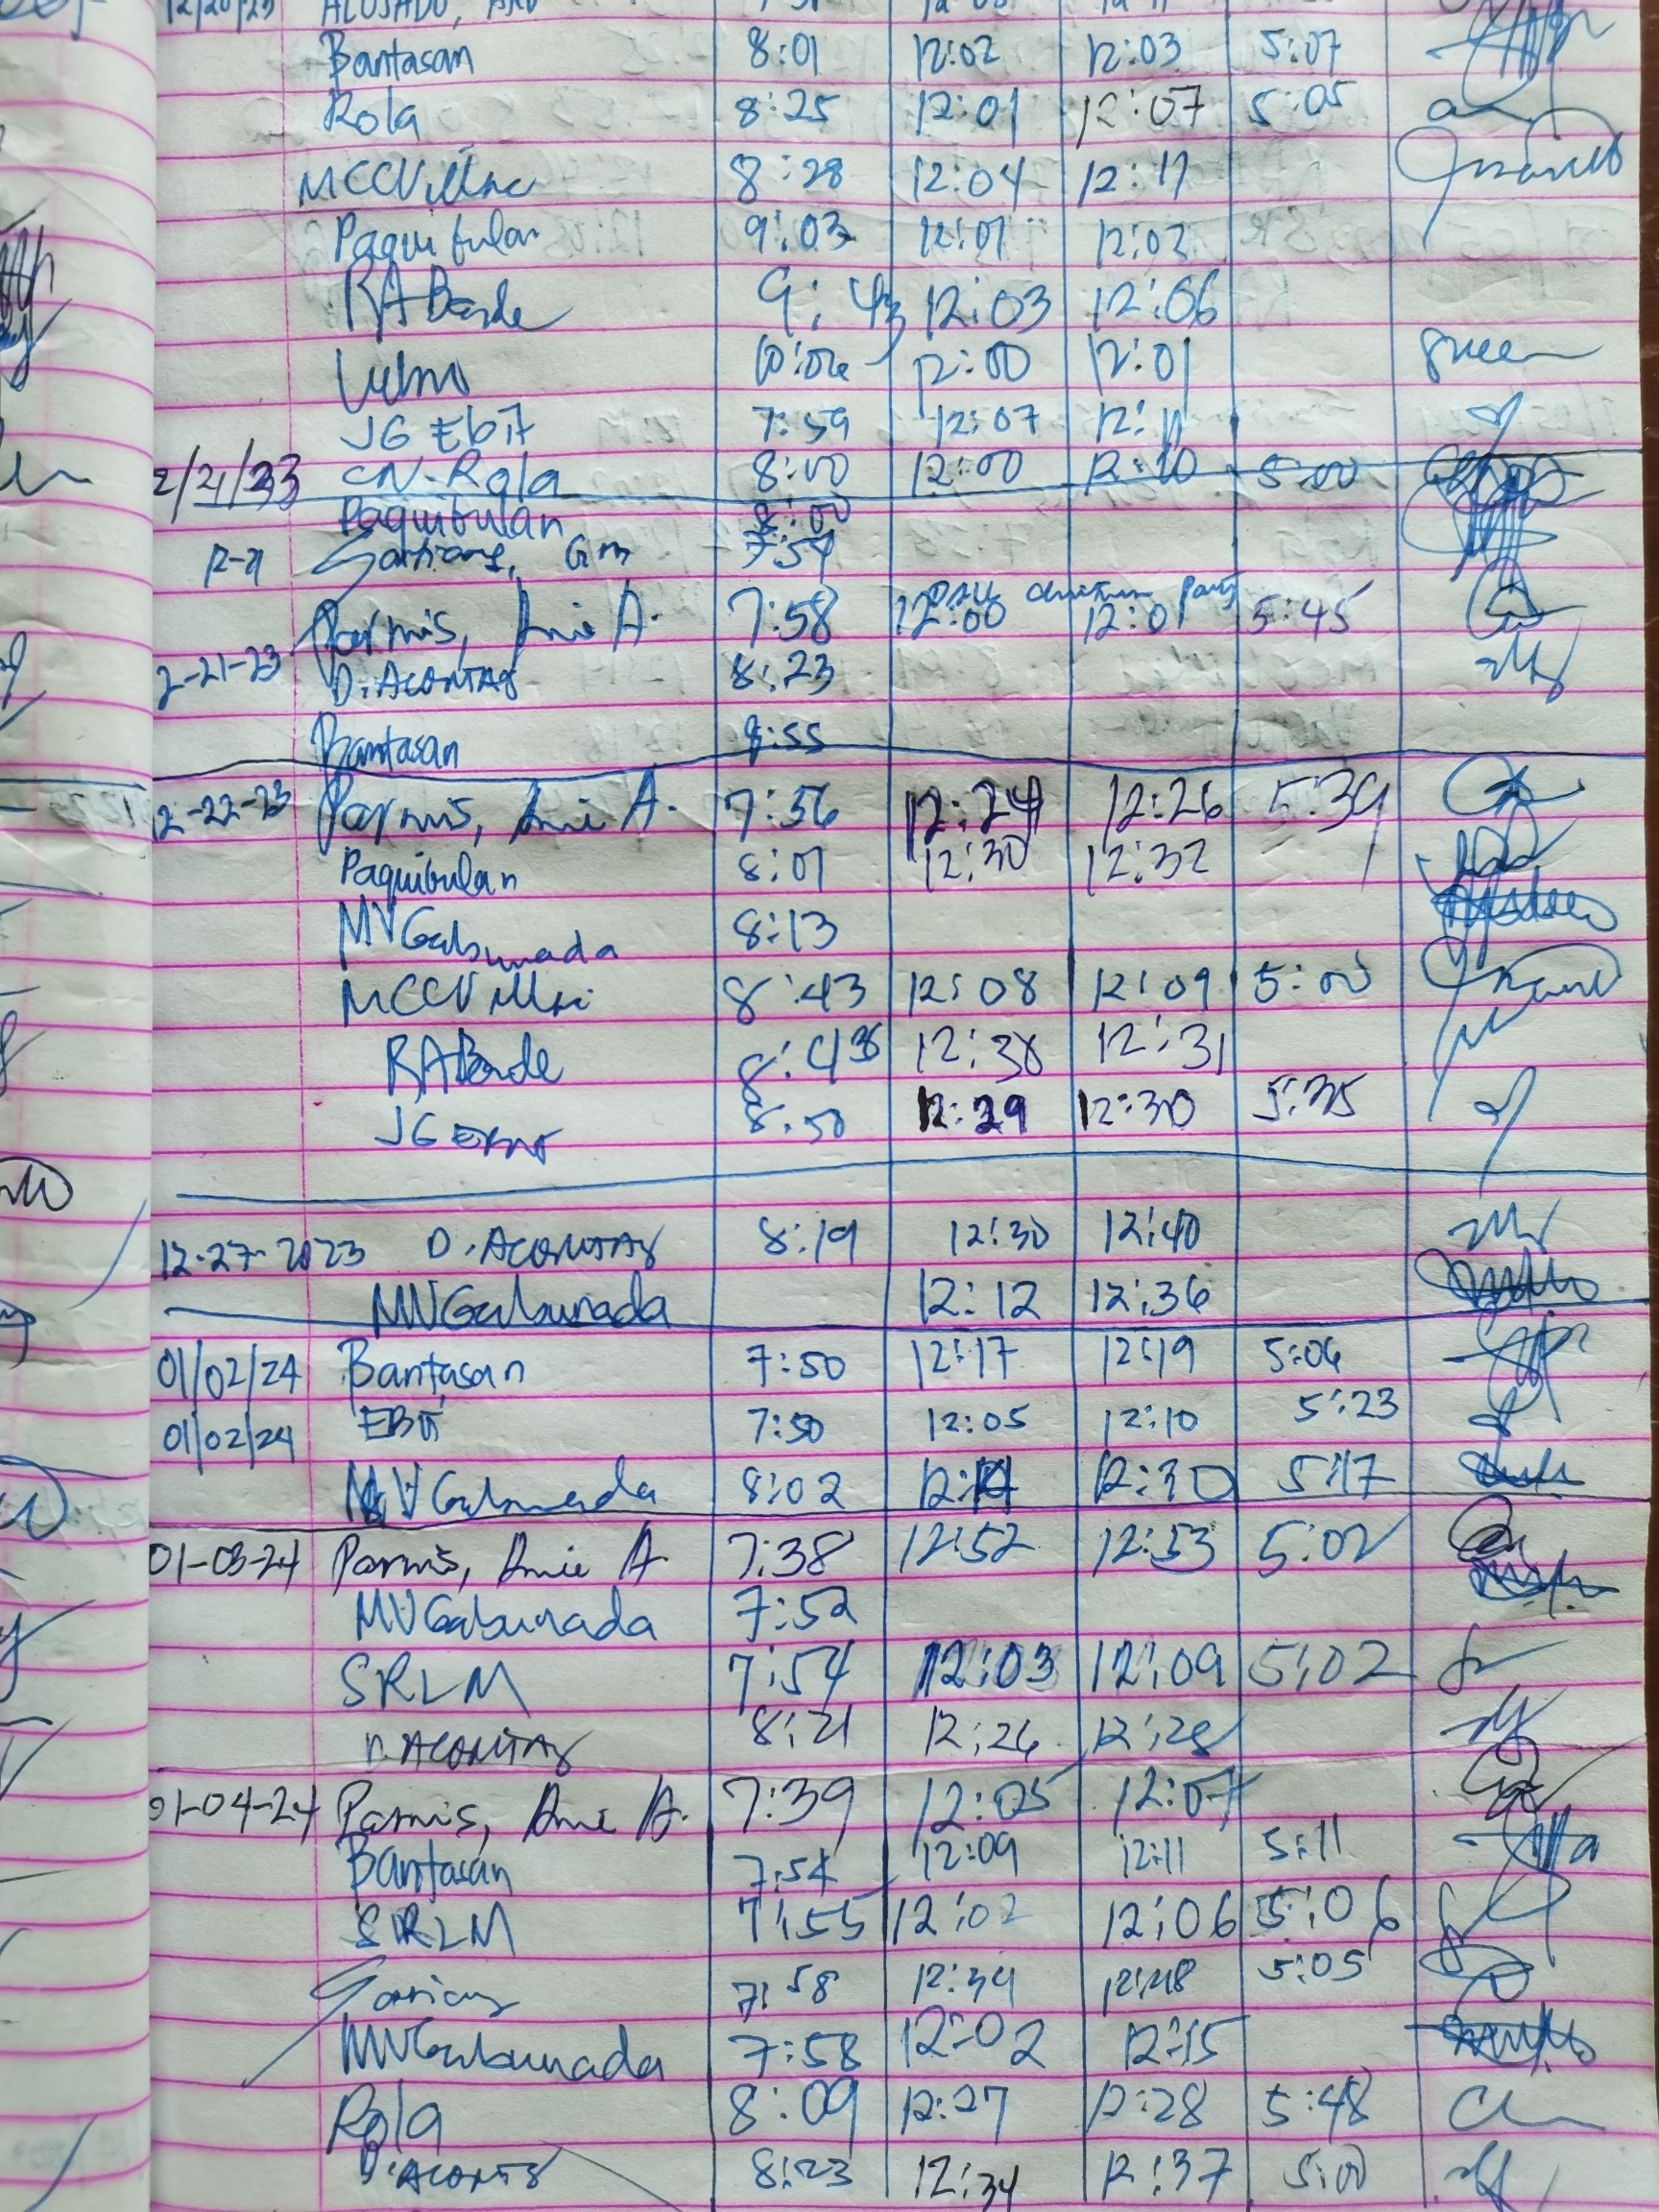 12/20/23 ALOSADO,
Bantasan 8:01 12:02 12:03 5:07
Rola 8:25 12:01 12:07 5:05
MCCVillac 8:28 12:04 12:11
Paquibulan 9:03 12:01 12:02
RABande 9:43 12:03 12:06
10:06 12:00 12:01
JG Ebit 7:59 12:07 12:11
2/21/23 CN. Rola 8:00 12:00 12:10 5:00
Paquibulan 8:00
12-21 Gm 7:59
DSU Christmas Party
Parmis, Anie A. 7:58 12:00 12:01 5:45
2-21-23 D. ACONTAS 8:23
Bantasan 8:55
12-22-23 Parmis, Anie A. 7:56 12:24 12:26 5:39
Paquibulan 8:01 12:30 12:32
MVGabunada 8:13
MCCVillac 8:43 12:08 12:09 5:00
RABande 12:38 12:31
JG EBIT 8:50 12:29 12:30 5:35
12-27-2023 D. ACONTAS 8:19 12:30 12:40
MVGabunada 12:12 12:36
01/02/24 Bantasan 7:50 12:17 12:19 5:06
01/02/24 EBIT 7:50 12:05 12:10 5:23
MVGabunada 8:02 12:14 12:30 5:17
01-03-24 Parmis, Anie A 7:38 12:52 12:53 5:02
MVGabunada 7:52
SRLM 7:54 12:03 12:09 5:02
D. ACONTAS 8:21 12:26 12:28
01-04-24 Parmis, Anie A. 7:39 12:05 12:07
Bantasan 7:54 12:09 12:11 5:11
SRLM 7:55 12:02 12:06 5:06
7:58 12:34 12:48 5:05
MVGabunada 7:58 12:02 12:15
Rola 8:09 12:27 12:28 5:48
D. ACONTS 8:23 12:34 12:37 5:00